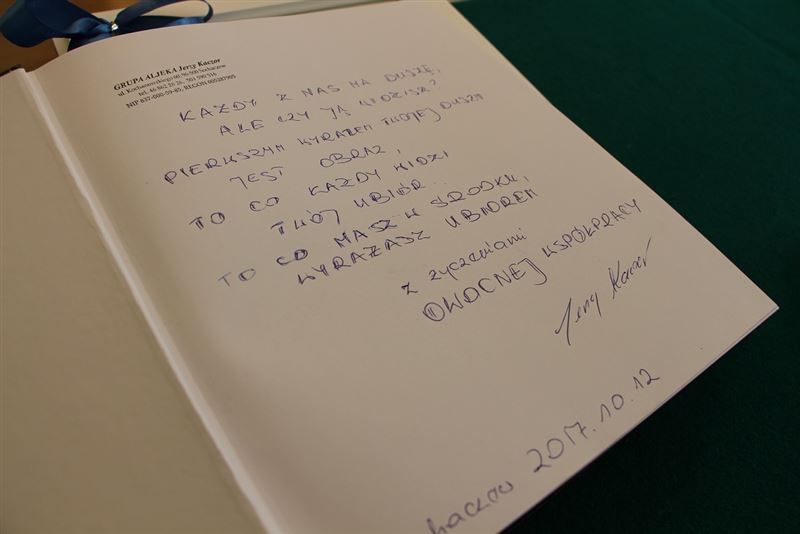 GRUPA ALJEKA Jerzy Kaczor
ul. Kochanowskiego 60, 96-500 Sochaczew
tel. 46 862 26 26, 501 590 516
NIP 837-000-59-85, REGON 005287905
KAŻDY Z NAS MA DUSZĘ,
ALE CZY JĄ WIDZISZ?
PIERWSZYM WYRAZEM TWOJEJ DUSZY
JEST OBRAZ,
TO CO KAŻDY WIDZI
TWÓJ UBIÓR...
TO CO MASZ W ŚRODKU,
WYRAŻASZ UBIOREM
z życzeniami
OWOCNEJ WSPÓŁPRACY
Jerzy Kaczor
2017.10.12